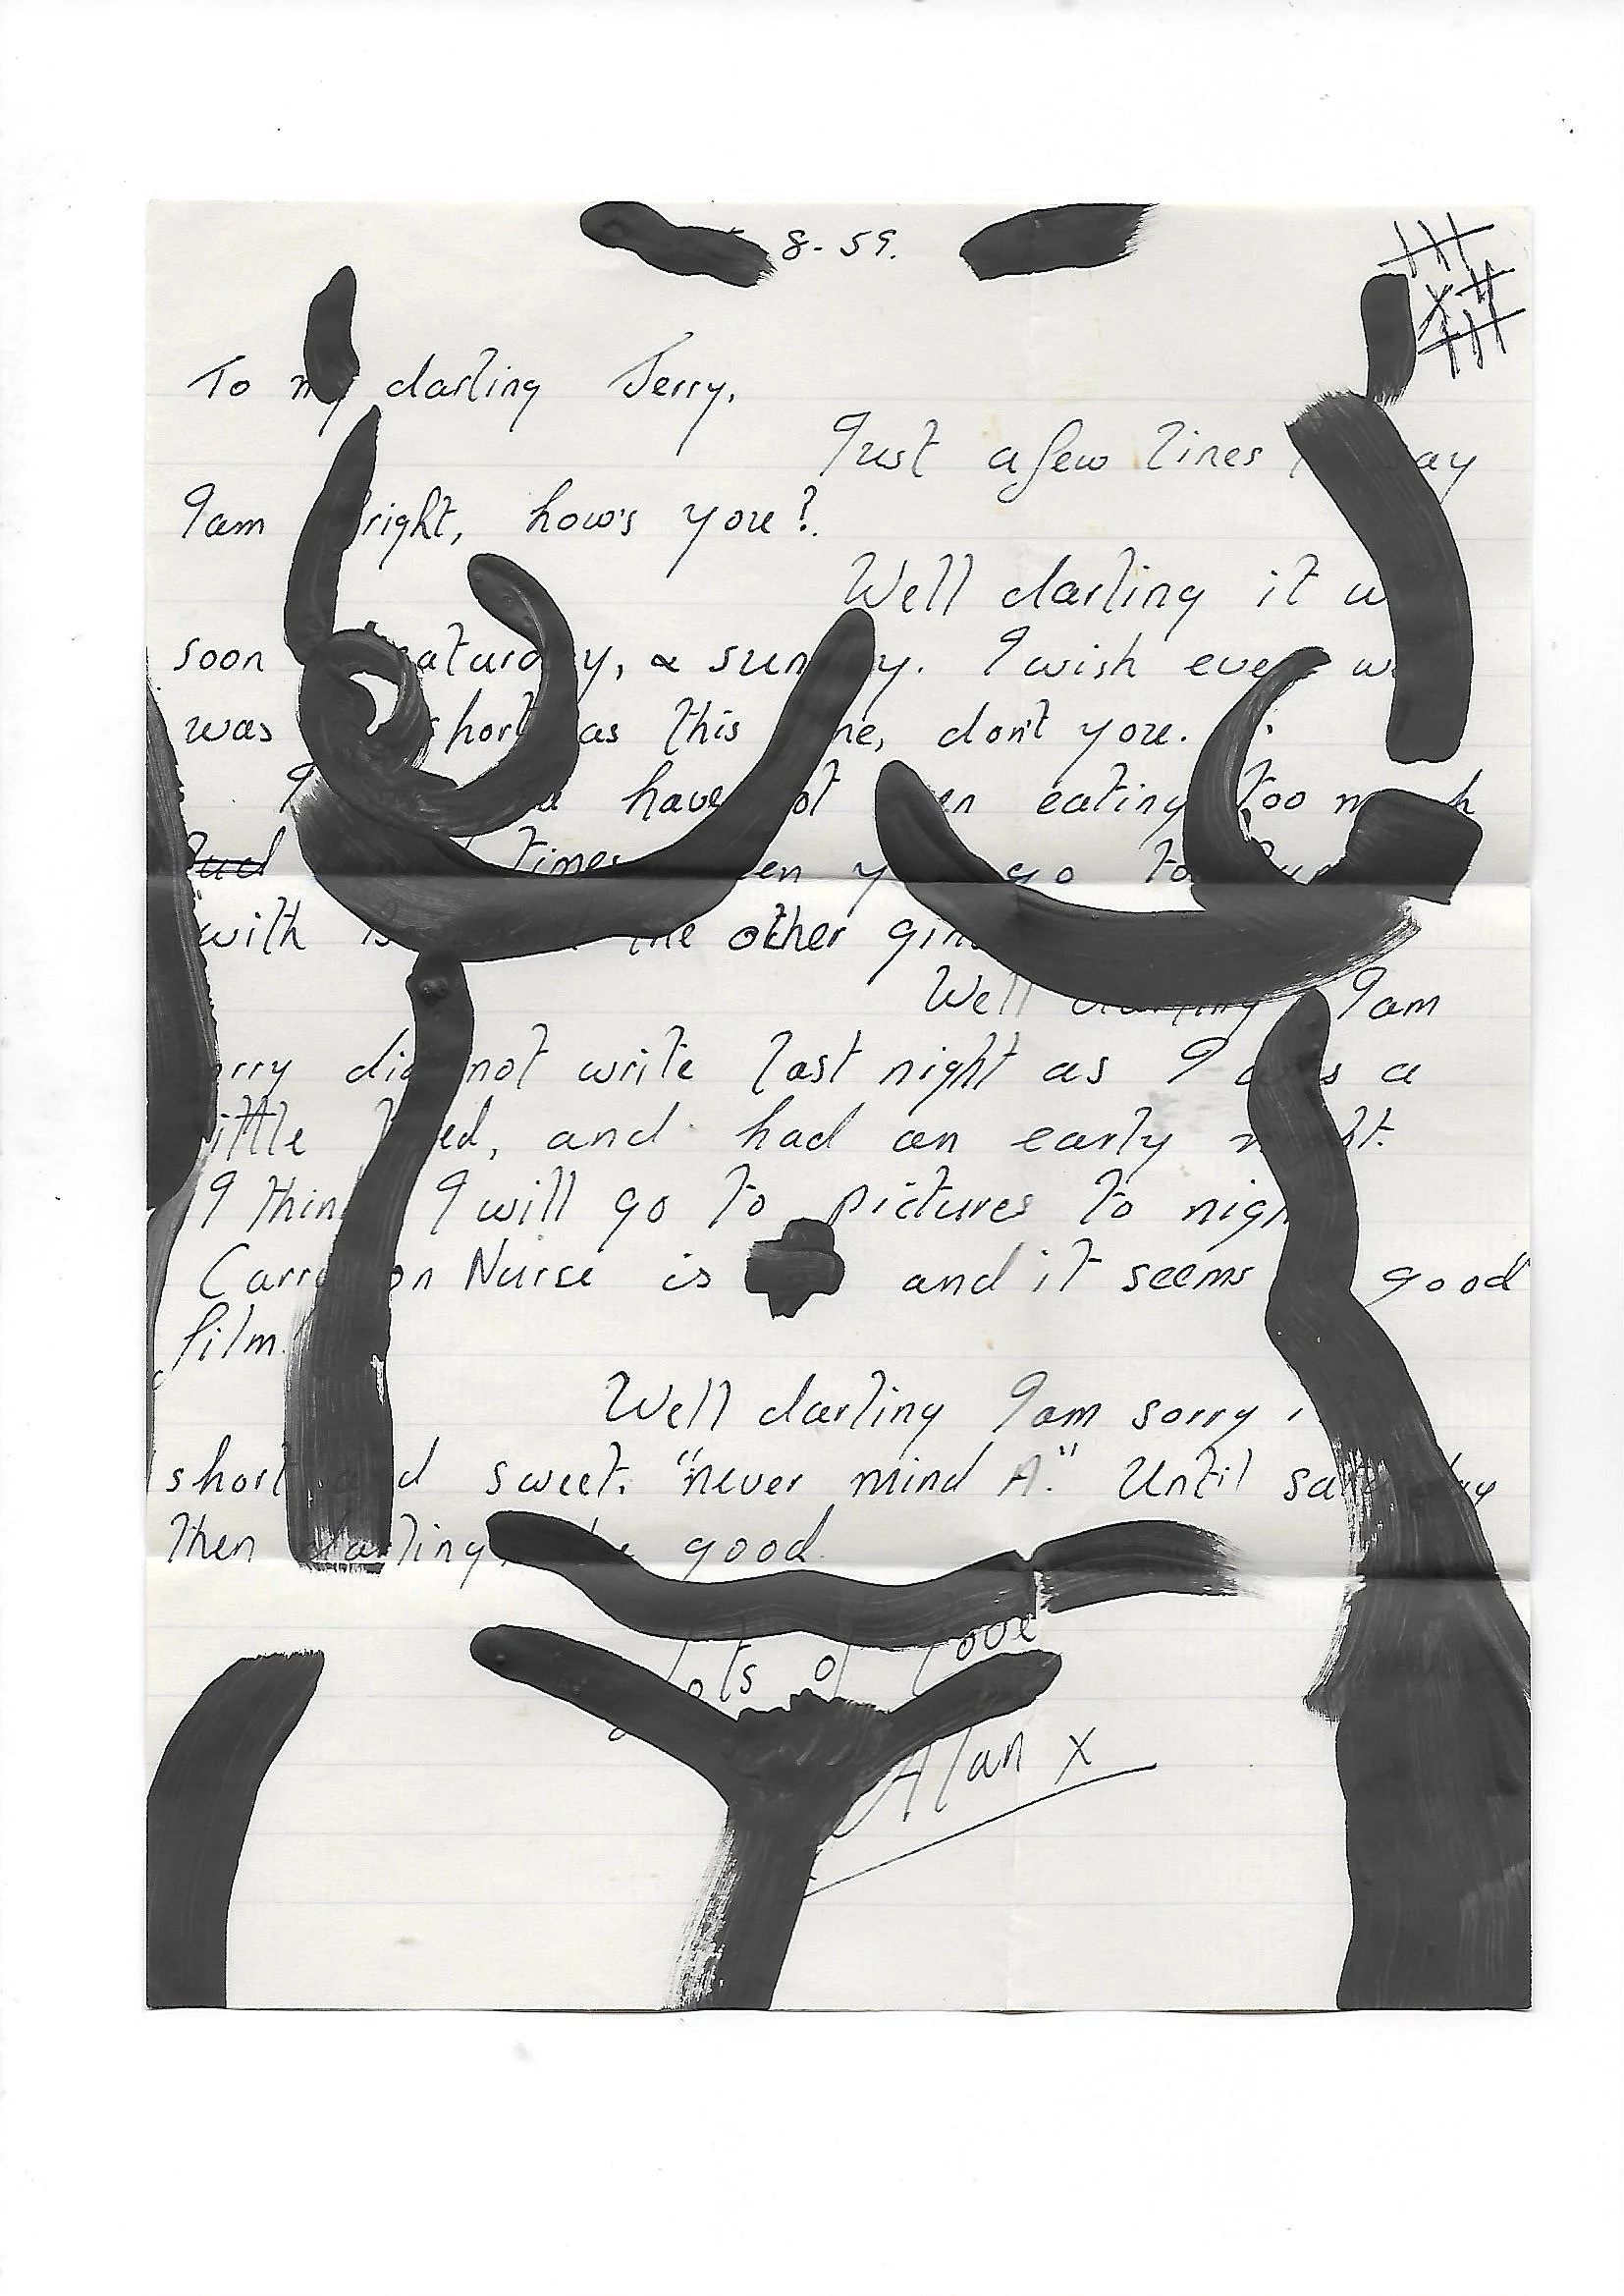 8-59.
To my darling Jerry,
Just a few lines ay
I am right, how's you?
Well darling it w
soon Saturday, & sunday. I wish every w
was short as this one, don't you.
I have not en eating too much
times en y go to
with the other girls
Well darling I am
rry did not write last night as I was a
little tired, and had an early night.
I think I will go to pictures to nigh
Carry on Nurse is and it seems good
film.
Well darling I am sorry
short and sweet. "never mind A." Until saturday
then darling, be good.
lots of love
Alan x